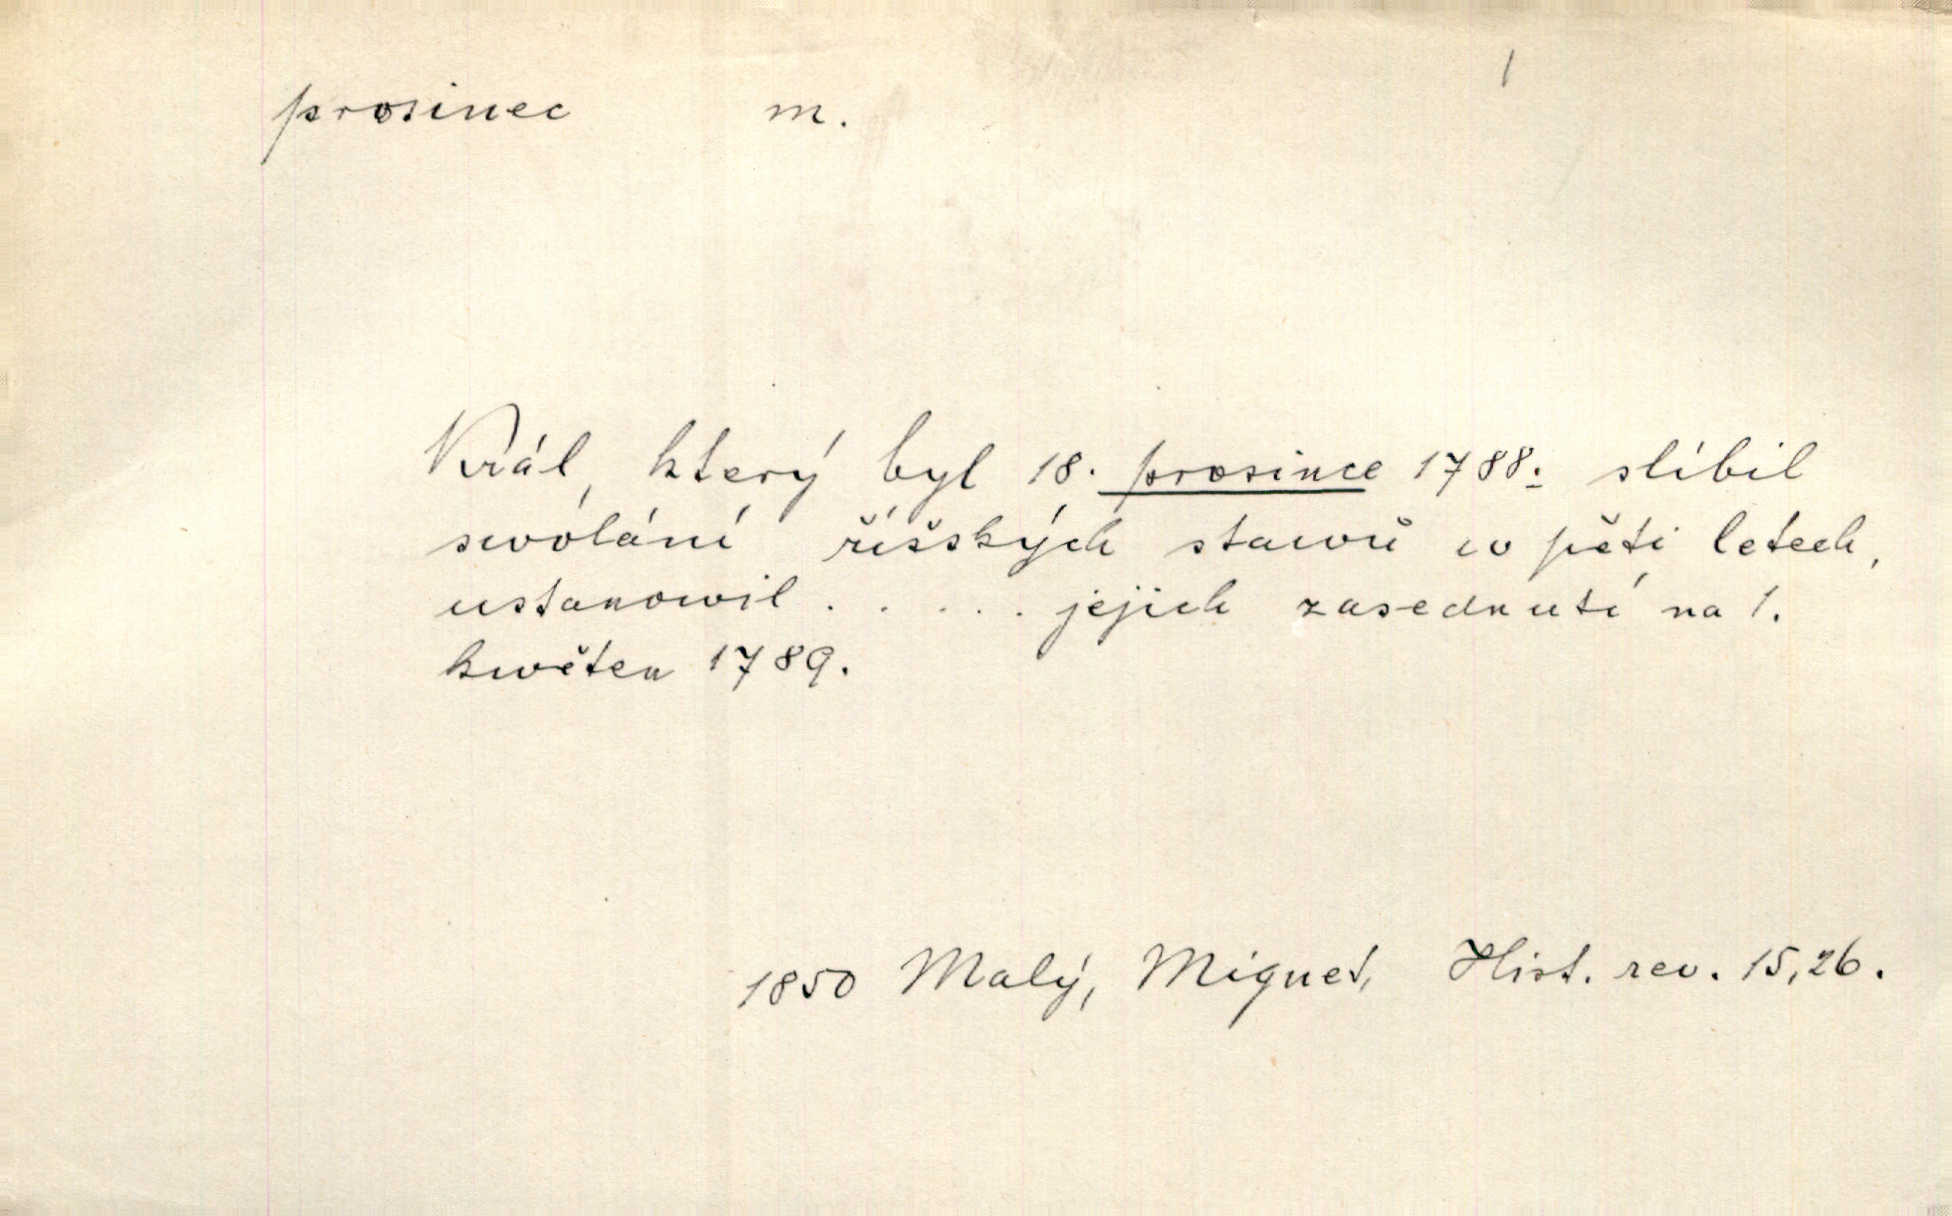 prosinec m. 1
Král, který byl 18. prosince 1788. slíbil
swolání říšských stawů w pěti letech,
ustanowil . . . . . jejich zasednutí na 1.
kwěten 1789.
1850 Malý, Mignet, Hist. rev. 15,26.